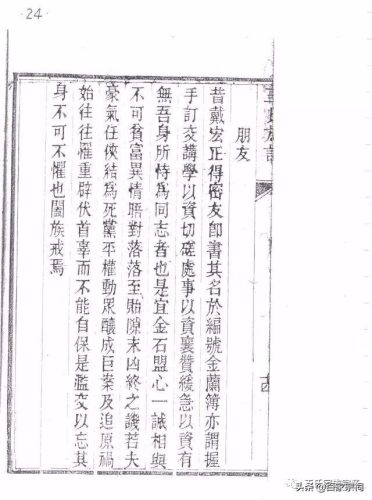 24
朋友
昔戴宏正得密友卽書其名於編號金蘭簿亦謂握
手訂交講學以資切磋處事以資襄贊緩急以資有
無吾身所恃爲同志者也是宜金石盟心一誠相與
不可貧富異情晤對落落至貽隙末凶終之譏若夫
豪氣任俠結爲死黨平權動衆釀成巨案及追原禍
始往往罹重辟伏首辜而不能自保是濫交以忘其
身不可不懼也闔族戒焉
头条@百家宗祠